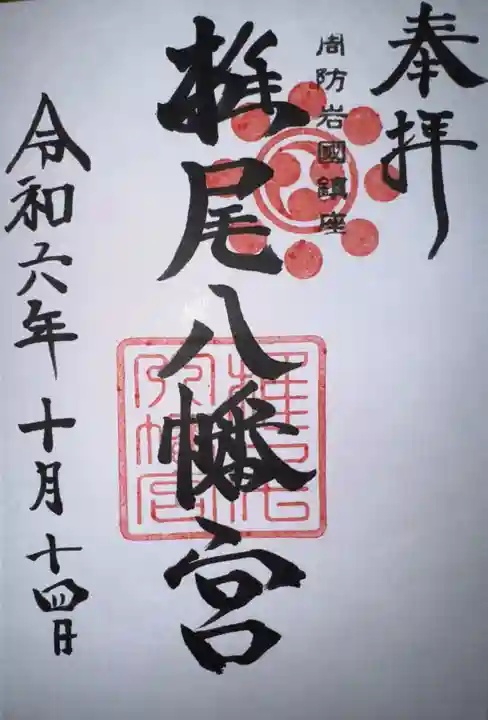 奉拝
周防岩國鎮座
椎尾八幡宮
令和六年十月十四日